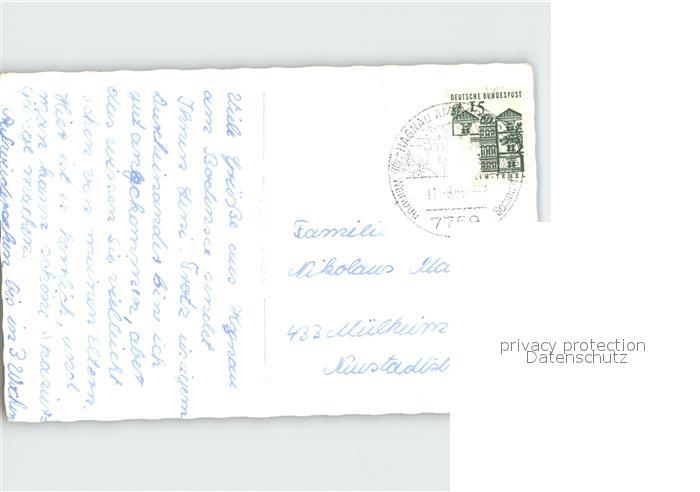 Viele Grüße aus Hagnau
am Bodensee sendet
Ihnen Heri. Trotz einigem
Durcheinander bin ich
gut angekommen, aber
das wissen Sie vielleicht
schon von meinen Eltern.
Hier ist es herrlich, und
man kann schöne Spazier-
gänge machen.
bis in 3 Wochen
DEUTSCHE BUNDESPOST
15
HAGNAU AM
7759
Familie
Nikolaus Ma
433 Mülheim
Neustadtst
privacy protection
Datenschutz